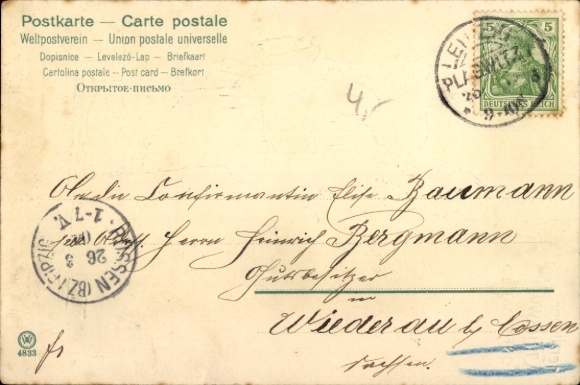 Postkarte — Carte postale
Weltpostverein — Union postale universelle
Dopisnice — Levelező-Lap — Briefkaart
Cartolina postale — Post card — Brefkort
Открытое-письмо
5 5
DEUTSCHES REICH
LEIPZIG
PLAGWITZ
9-10
4,-
An die Confirmantin Elise Baumann
Herrn Heinrich Bergmann
Gutsbesitzer
in
Wiederau b/
Sachsen.
(BZ. LEIPZIG)
26 3
1-7 V.
4833